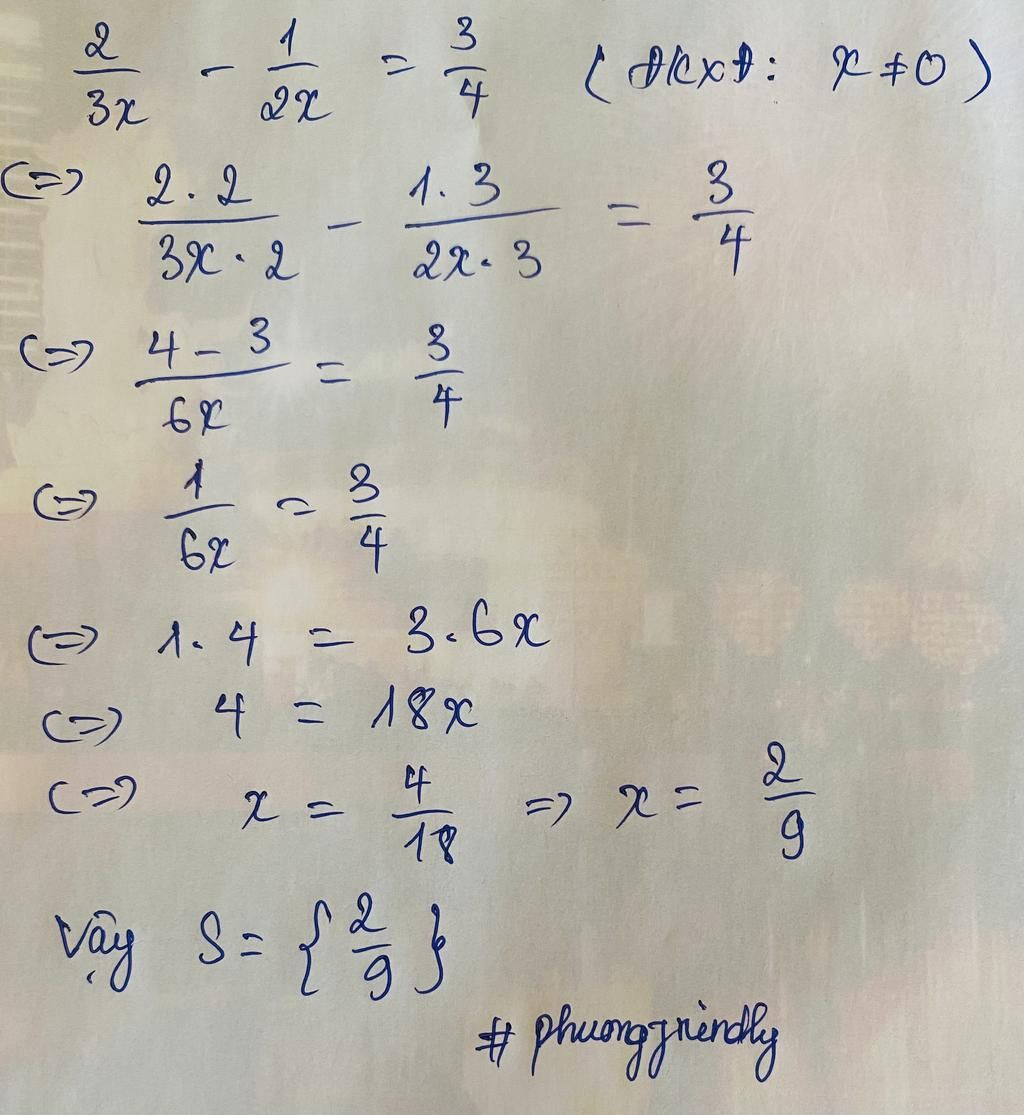 2/3x - 1/2x = 3/4 (ĐKXĐ: x ≠ 0)
(=) 2.2/3x.2 - 1.3/2x.3 = 3/4
(=) 4-3/6x = 3/4
(=) 1/6x = 3/4
(=) 1.4 = 3.6x
(=) 4 = 18x
(=) x = 4/18 => x = 2/9
Vậy S = {2/9}
# phuongfriendly